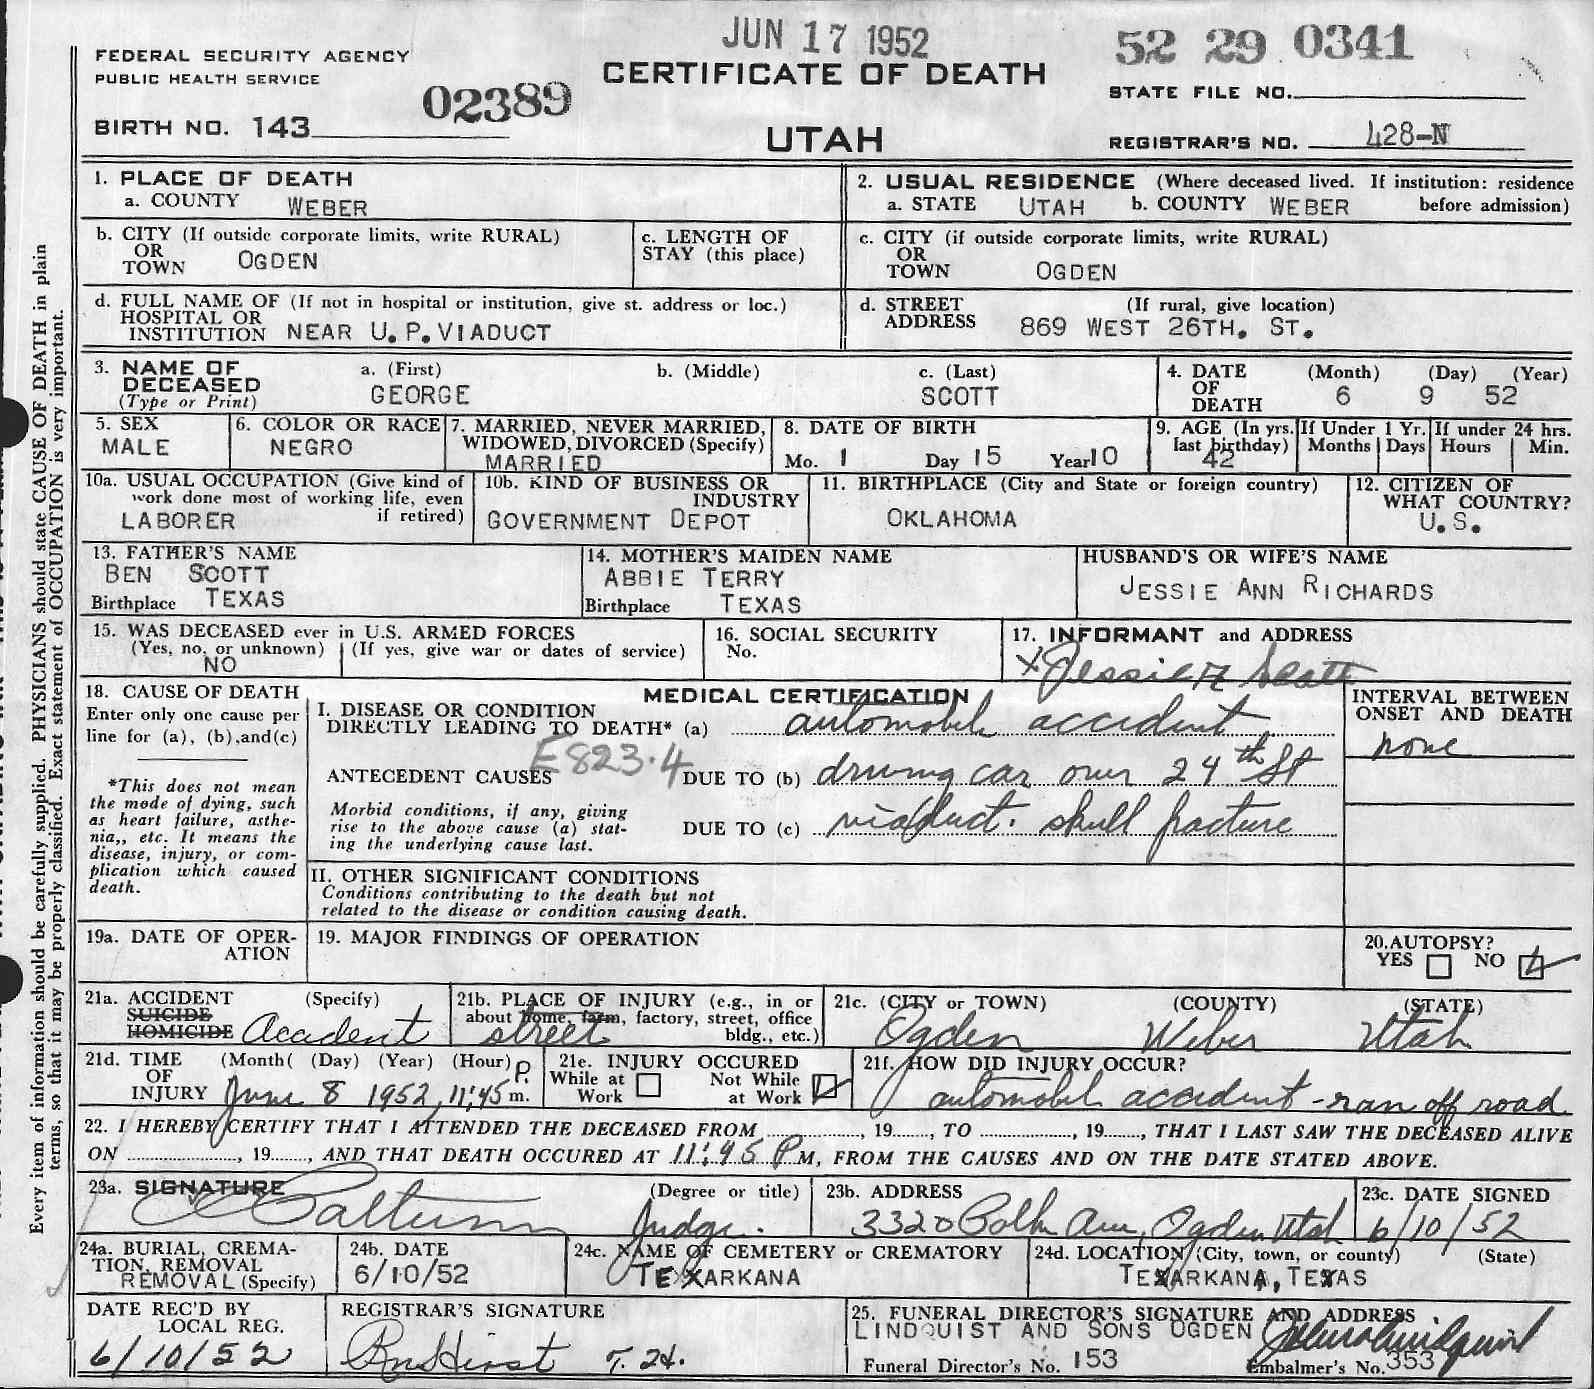 JUN 17 1952
52 29 0341
FEDERAL SECURITY AGENCY
PUBLIC HEALTH SERVICE
CERTIFICATE OF DEATH
STATE FILE NO.
02389
BIRTH NO. 143
UTAH
REGISTRAR'S NO. 428-N
1. PLACE OF DEATH
a. COUNTY WEBER
2. USUAL RESIDENCE (Where deceased lived. If institution: residence before admission)
a. STATE UTAH b. COUNTY WEBER
b. CITY (If outside corporate limits, write RURAL)
OR
TOWN OGDEN
c. LENGTH OF
STAY (this place)
c. CITY (if outside corporate limits, write RURAL)
OR
TOWN OGDEN
d. FULL NAME OF (If not in hospital or institution, give st. address or loc.)
HOSPITAL OR
INSTITUTION NEAR U.P. VIADUCT
d. STREET (If rural, give location)
ADDRESS 869 WEST 26TH. ST.
3. NAME OF DECEASED
(Type or Print)
a. (First) b. (Middle) c. (Last)
GEORGE SCOTT
4. DATE OF DEATH (Month) (Day) (Year)
6 9 52
5. SEX
MALE
6. COLOR OR RACE
NEGRO
7. MARRIED, NEVER MARRIED,
WIDOWED, DIVORCED (Specify)
MARRIED
8. DATE OF BIRTH
Mo. 1 Day 15 Year 10
9. AGE (In yrs. last birthday)
42
If Under 1 Yr. Months Days
If under 24 hrs. Hours Min.
10a. USUAL OCCUPATION (Give kind of
work done most of working life, even
if retired)
LABORER
10b. KIND OF BUSINESS OR
INDUSTRY
GOVERNMENT DEPOT
11. BIRTHPLACE (City and State or foreign country)
OKLAHOMA
12. CITIZEN OF
WHAT COUNTRY?
U.S.
13. FATHER'S NAME
BEN SCOTT
Birthplace TEXAS
14. MOTHER'S MAIDEN NAME
ABBIE TERRY
Birthplace TEXAS
HUSBAND'S OR WIFE'S NAME
JESSIE ANN RICHARDS
15. WAS DECEASED ever in U.S. ARMED FORCES
(Yes, no, or unknown) (If yes, give war or dates of service)
NO
16. SOCIAL SECURITY
No.
17. INFORMANT and ADDRESS
x Jessie A Scott
18. CAUSE OF DEATH
Enter only one cause per
line for (a), (b), and (c)
*This does not mean
the mode of dying, such
as heart failure, asthe-
nia,, etc. It means the
disease, injury, or com-
plication which caused
death.
MEDICAL CERTIFICATION
I. DISEASE OR CONDITION
DIRECTLY LEADING TO DEATH* (a) automobile accident
E823.4
ANTECEDENT CAUSES DUE TO (b) driving car over 24th St
Morbid conditions, if any, giving
rise to the above cause (a) stat-
ing the underlying cause last.
DUE TO (c) viaduct. skull fracture
INTERVAL BETWEEN
ONSET AND DEATH
none
II. OTHER SIGNIFICANT CONDITIONS
Conditions contributing to the death but not
related to the disease or condition causing death.
19a. DATE OF OPER-
ATION
19. MAJOR FINDINGS OF OPERATION
20. AUTOPSY?
YES NO
21a. ACCIDENT (Specify)
SUICIDE
HOMICIDE Accident
21b. PLACE OF INJURY (e.g., in or
about home, farm, factory, street, office
bldg., etc.)
street
21c. (CITY or TOWN) (COUNTY) (STATE)
Ogden Weber Utah
21d. TIME OF INJURY (Month( (Day) (Year) (Hour)
June 8 1952, 11:45 P. m.
21e. INJURY OCCURED
While at Work Not While at Work
21f. HOW DID INJURY OCCUR?
automobile accident - ran off road
22. I HEREBY CERTIFY THAT I ATTENDED THE DECEASED FROM , 19 , TO , 19 , THAT I LAST SAW THE DECEASED ALIVE
ON , 19 , AND THAT DEATH OCCURED AT 11:45 P M, FROM THE CAUSES AND ON THE DATE STATED ABOVE.
23a. SIGNATURE (Degree or title)
Judge.
23b. ADDRESS
3320 Ogden Utah
23c. DATE SIGNED
6/10/52
24a. BURIAL, CREMA-
TION, REMOVAL
REMOVAL (Specify)
24b. DATE
6/10/52
24c. NAME OF CEMETERY or CREMATORY
TEXARKANA
24d. LOCATION (City, town, or county) (State)
TEXARKANA, TEXAS
DATE REC'D BY
LOCAL REG.
6/10/52
REGISTRAR'S SIGNATURE
25. FUNERAL DIRECTOR'S SIGNATURE AND ADDRESS
LINDQUIST AND SONS OGDEN
Funeral Director's No. 153
Embalmer's No. 353
Every item of information should be carefully supplied. PHYSICIANS should state CAUSE OF DEATH in plain
terms, so that it may be properly classified. Exact statement of OCCUPATION is very important.